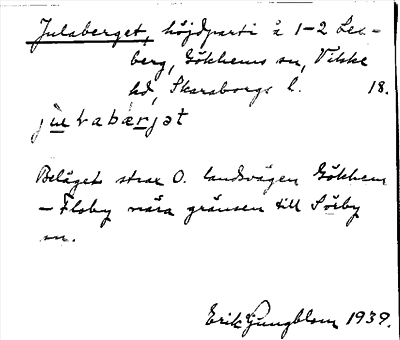 Julaberget, höjdparti å 1-2 Lee-
berg, Gökhems sn, Vilske
hd, Skaraborgs l. 18.
julabærjət
Beläget strax O. landsvägen Gökhem
- Floby nära gränsen till Sörby
sn.
Erik Ljungblom 1939.